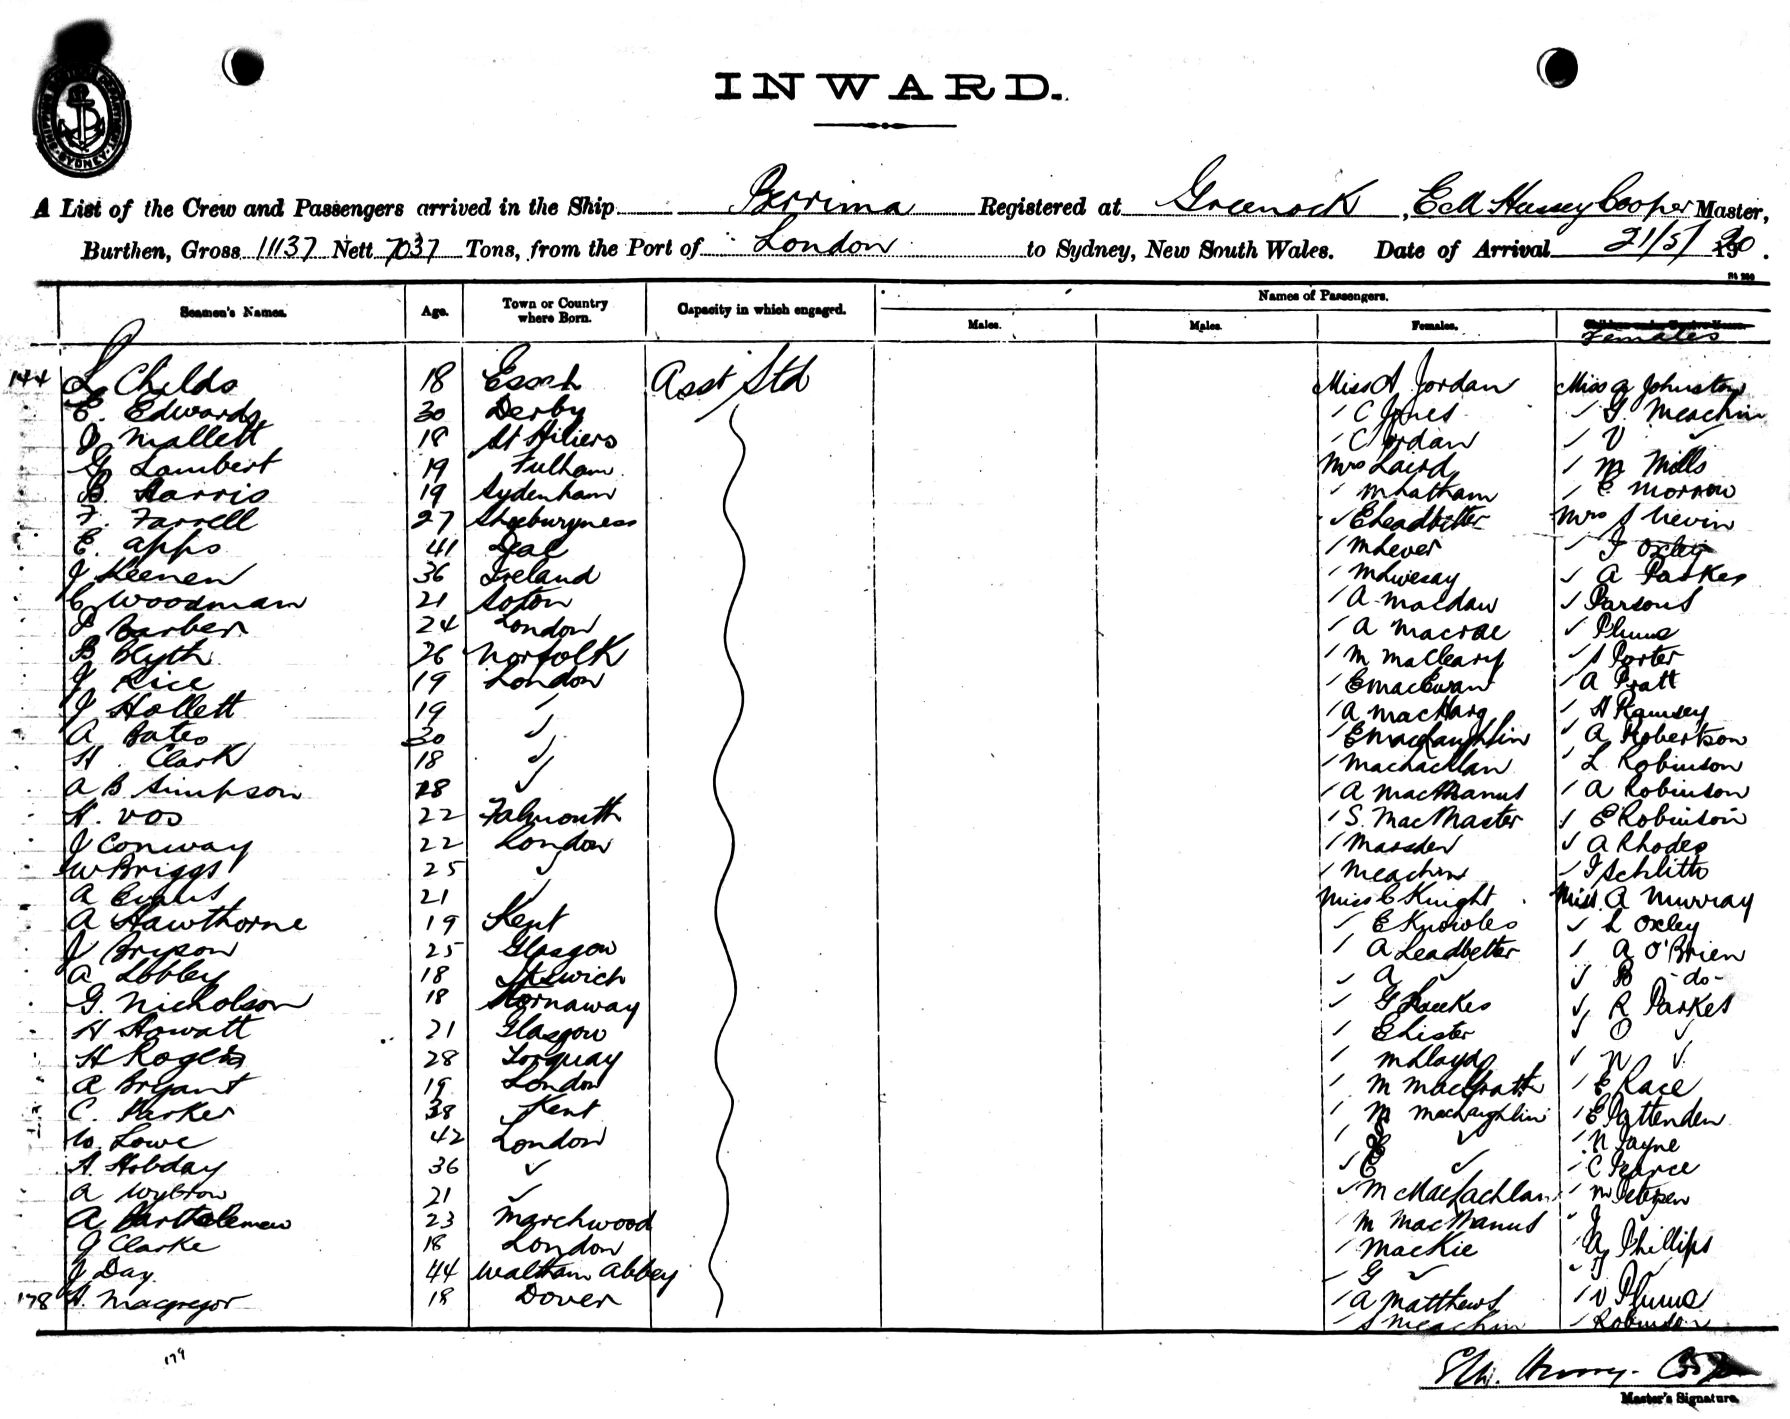 SYDNEY
INWARD.
A List of the Crew and Passengers arrived in the Ship Berrima Registered at Greenock, E M Hussey Cooper Master,
Burthen, Gross 11137 Nett 7037 Tons, from the Port of London to Sydney, New South Wales. Date of Arrival 21/5/ 1920.
Names of Passengers.
Seamen's Names. Age. Town or Country where Born. Capacity in which engaged. Males. Males. Females. Children under Twelve Years. Females
144 L Childs 18 Asst Std Miss A Jordan Miss A Johnston
E. Edwards 30 Derby ✓ C Jones ✓ G. Meachin
J Mallett 18 St Hiliers ✓ C Jordan ✓ V ✓
G Lambert 19 Fulham Mrs Laird ✓ M Mills
B. Harris 19 Sydenham ✓ M Latham ✓ E Morrow
F. Farrell 27 Shoeburyness ✓ E Leadbitter Mrs S Nevin
E. Apps 41 Deal ✓ M Lever ✓ I Oxley
J Keenen 36 Ireland ✓ M Livesay ✓ A Parkes
C Woodman 21 Soton ✓ A Macdaw ✓ Parsons
P Barber 24 London ✓ A Macrae ✓ Plume
B Blyth 26 Norfolk ✓ M MacCleary ✓ S Porter
J Rice 19 London ✓ E MacEwan ✓ A Pratt
J Hollett 19 ✓ ✓ A MacHarg ✓ H Ramsey
A Bates 30 ✓ ✓ E MacLaughlin ✓ A Robertson
H. Clark 18 ✓ ✓ MacLachlan ✓ L Robinson
A B Simpson 18 ✓ ✓ A MacManus ✓ A Robinson
H. Vos 22 Falmouth ✓ S. MacMaster ✓ E Robinson
J Conway 22 London ✓ Marsden ✓ A Rhodes
W Briggs 25 ✓ ✓ Meachin ✓ I Schlitte
A Evans 21 ✓ Miss C Knight Miss. A Murray
A Hawthorne 19 Kent ✓ E Knowles ✓ L Oxley
J Bryson 25 Glasgow ✓ A Leadbetter ✓ A O'Brien
A Lobley 18 Ipswich ✓ A ✓ ✓ B -do-
G. Nicholson 18 Stornaway ✓ G Loukes ✓ R Parkes
H Howatt 21 Glasgow ✓ E Lister ✓ O ✓
H Rogers 28 Torquay ✓ M Lloyd ✓ N ✓
A Bryant 19 London ✓ M MacGrath ✓ E Race
C. Parker 38 Kent ✓ M MacLaughlin ✓ E Pattenden
W. Lowe 42 London ✓ ✓ ✓ N Payne
A. Hobday 36 ✓ ✓ E ✓ ✓ C Pearce
A Wybrow 21 ✓ ✓ M MacLachlan ✓ M Petersen
A Bartholemew 23 Marchwood ✓ M MacManus ✓ J ✓
G Clarke 18 London ✓ Mackie ✓ Phillips
J Day 44 Waltham Abbey ✓ G ✓ ✓ ✓
178 A. Macgregor 18 Dover ✓ A Matthews ✓ V Plume
✓ S Meachin ✓ Robinson
179
Master's Signature.